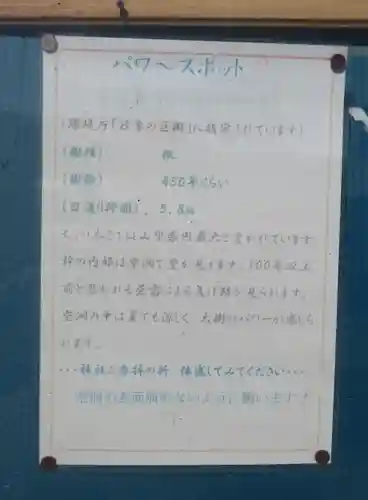 パワースポット
(環境庁「日本の巨樹」に指定されています)
(樹種) 楓
(樹齢) 450年くらい
(目通り幹囲) 5.8m
山梨県内最大と言われています
幹の内部は空洞で空が見えます。100年以上
前と思われる落雷による焦げ跡が見られます。
空洞の中は夏でも涼しく 大樹のパワーが感じら
れます。
・・・神社に参拝の折 体感してみてください・・・
ように願います